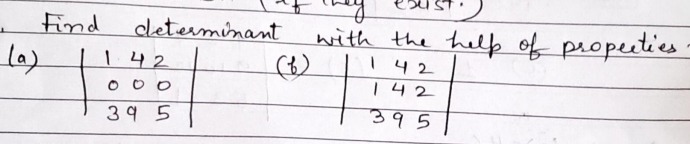 (if they exist.)
. Find determinant with the help of propeeties.
(a) | 1 4 2 | (b) | 1 4 2 |
| 0 0 0 | | 1 4 2 |
| 3 9 5 | | 3 9 5 |